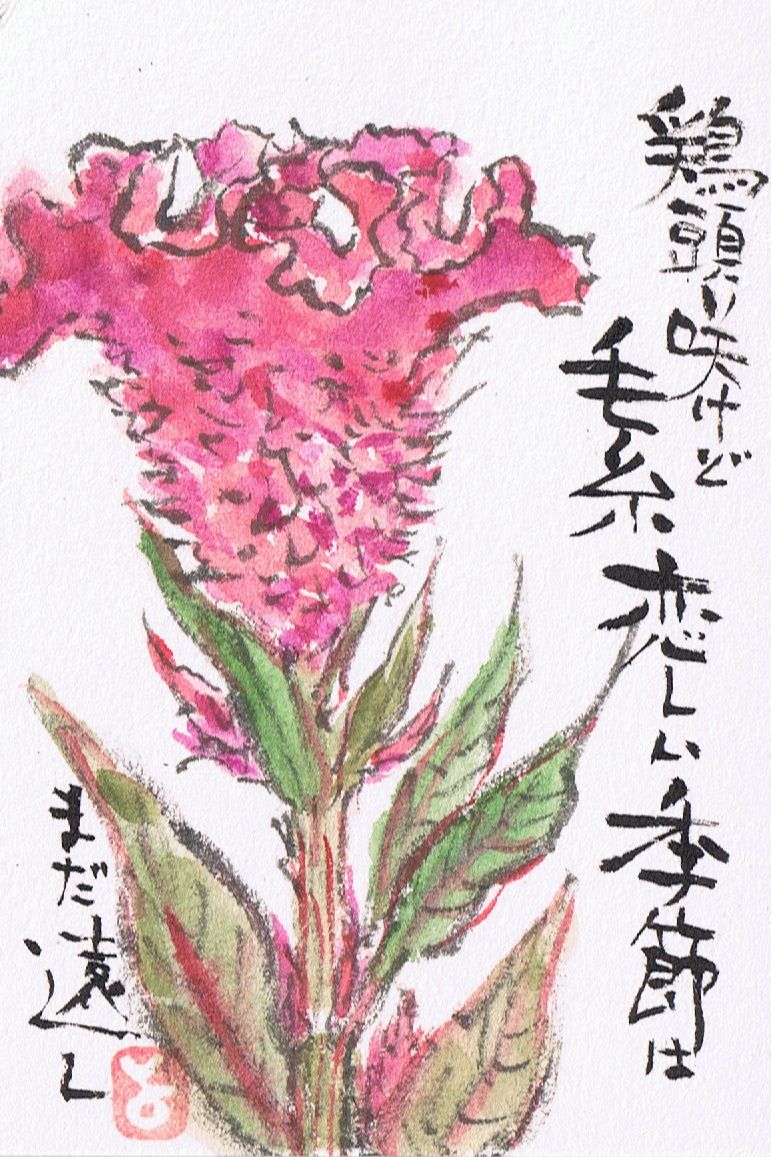 鶏頭咲けど
毛糸恋しい季節は
まだ遠し
と